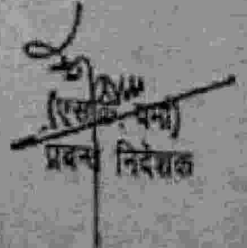 (एस०के० वर्मा)
प्रबन्ध निदेशक